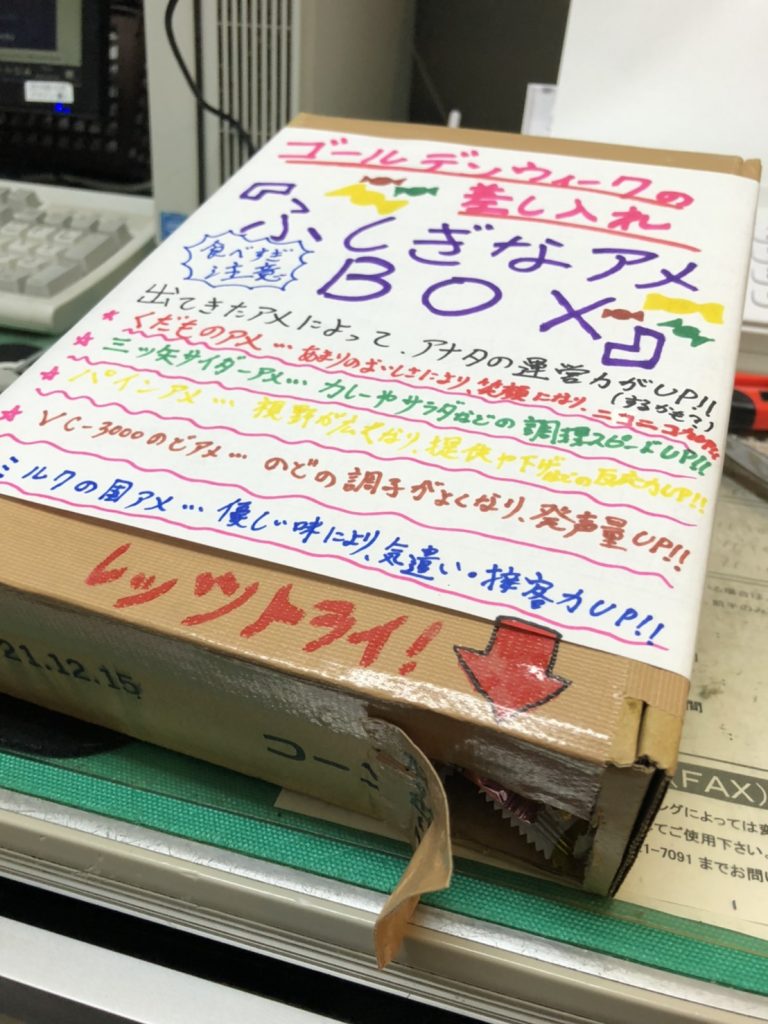 ゴールデンウィークの
差し入れ
『ふしぎなアメ
BOX』
食べすぎ
注意
出てきたアメによって、アナタの運営力がUP!!
(するかも?)
★くだものアメ…あまりのおいしさにより、笑顔になり、ニコニコ力UP!!
★三ツ矢サイダーアメ…カレーやサラダなどの調理スピードUP!!
パインアメ…視野が広くなり、提供や下げなどの反応力UP!!
★VC-3000のどアメ…のどの調子がよくなり、発声量UP!!
ミルクの国アメ…優しい味により、気遣い・接客力UP!!
レッツトライ!
21.12.15
コー
FAX)
ングによっては変
てご使用下さい。
1-7091 までお問い